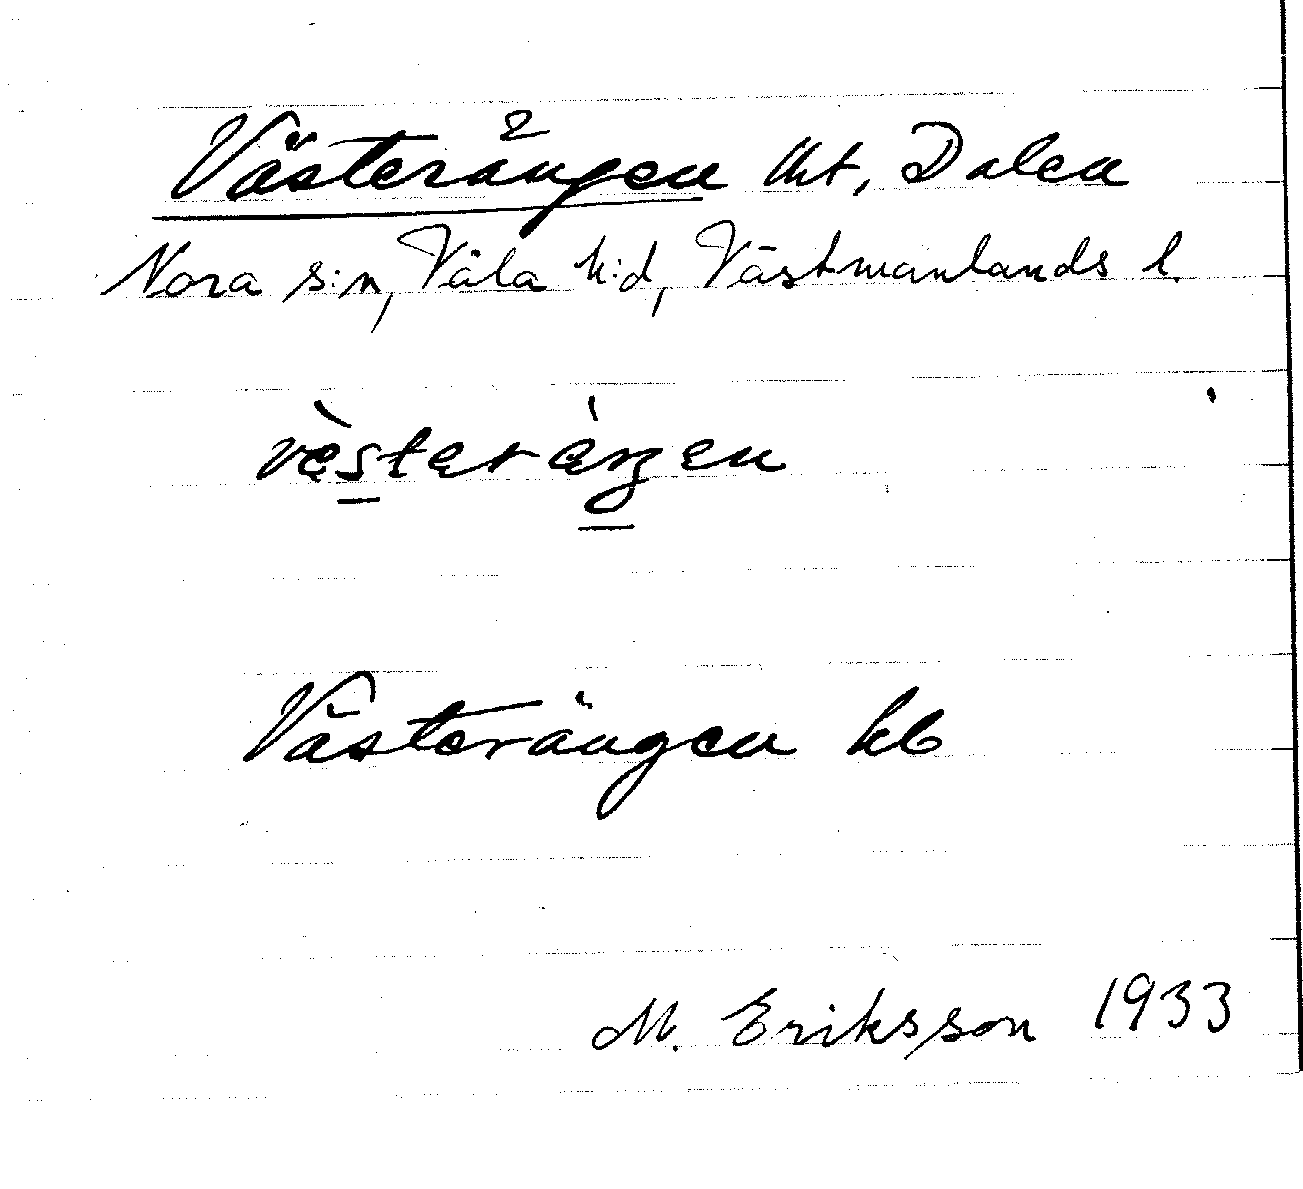 Västerängen lht, Dalen
Nora s:n, Våla h:d, Västmanlands l.
vèsterȧŋen
Västerängen kb
M. Eriksson 1933